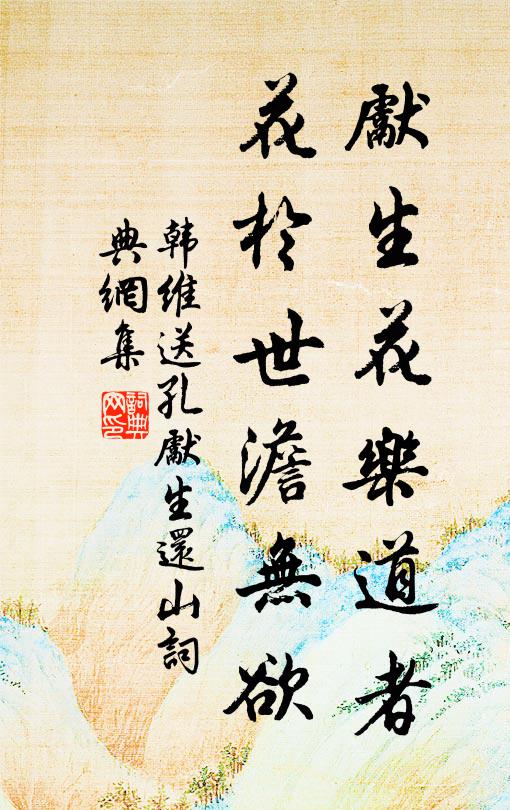 獻生花樂道者
花於世澹無欲
韩維送孔獻生還山詞
典網集
詞典
网印